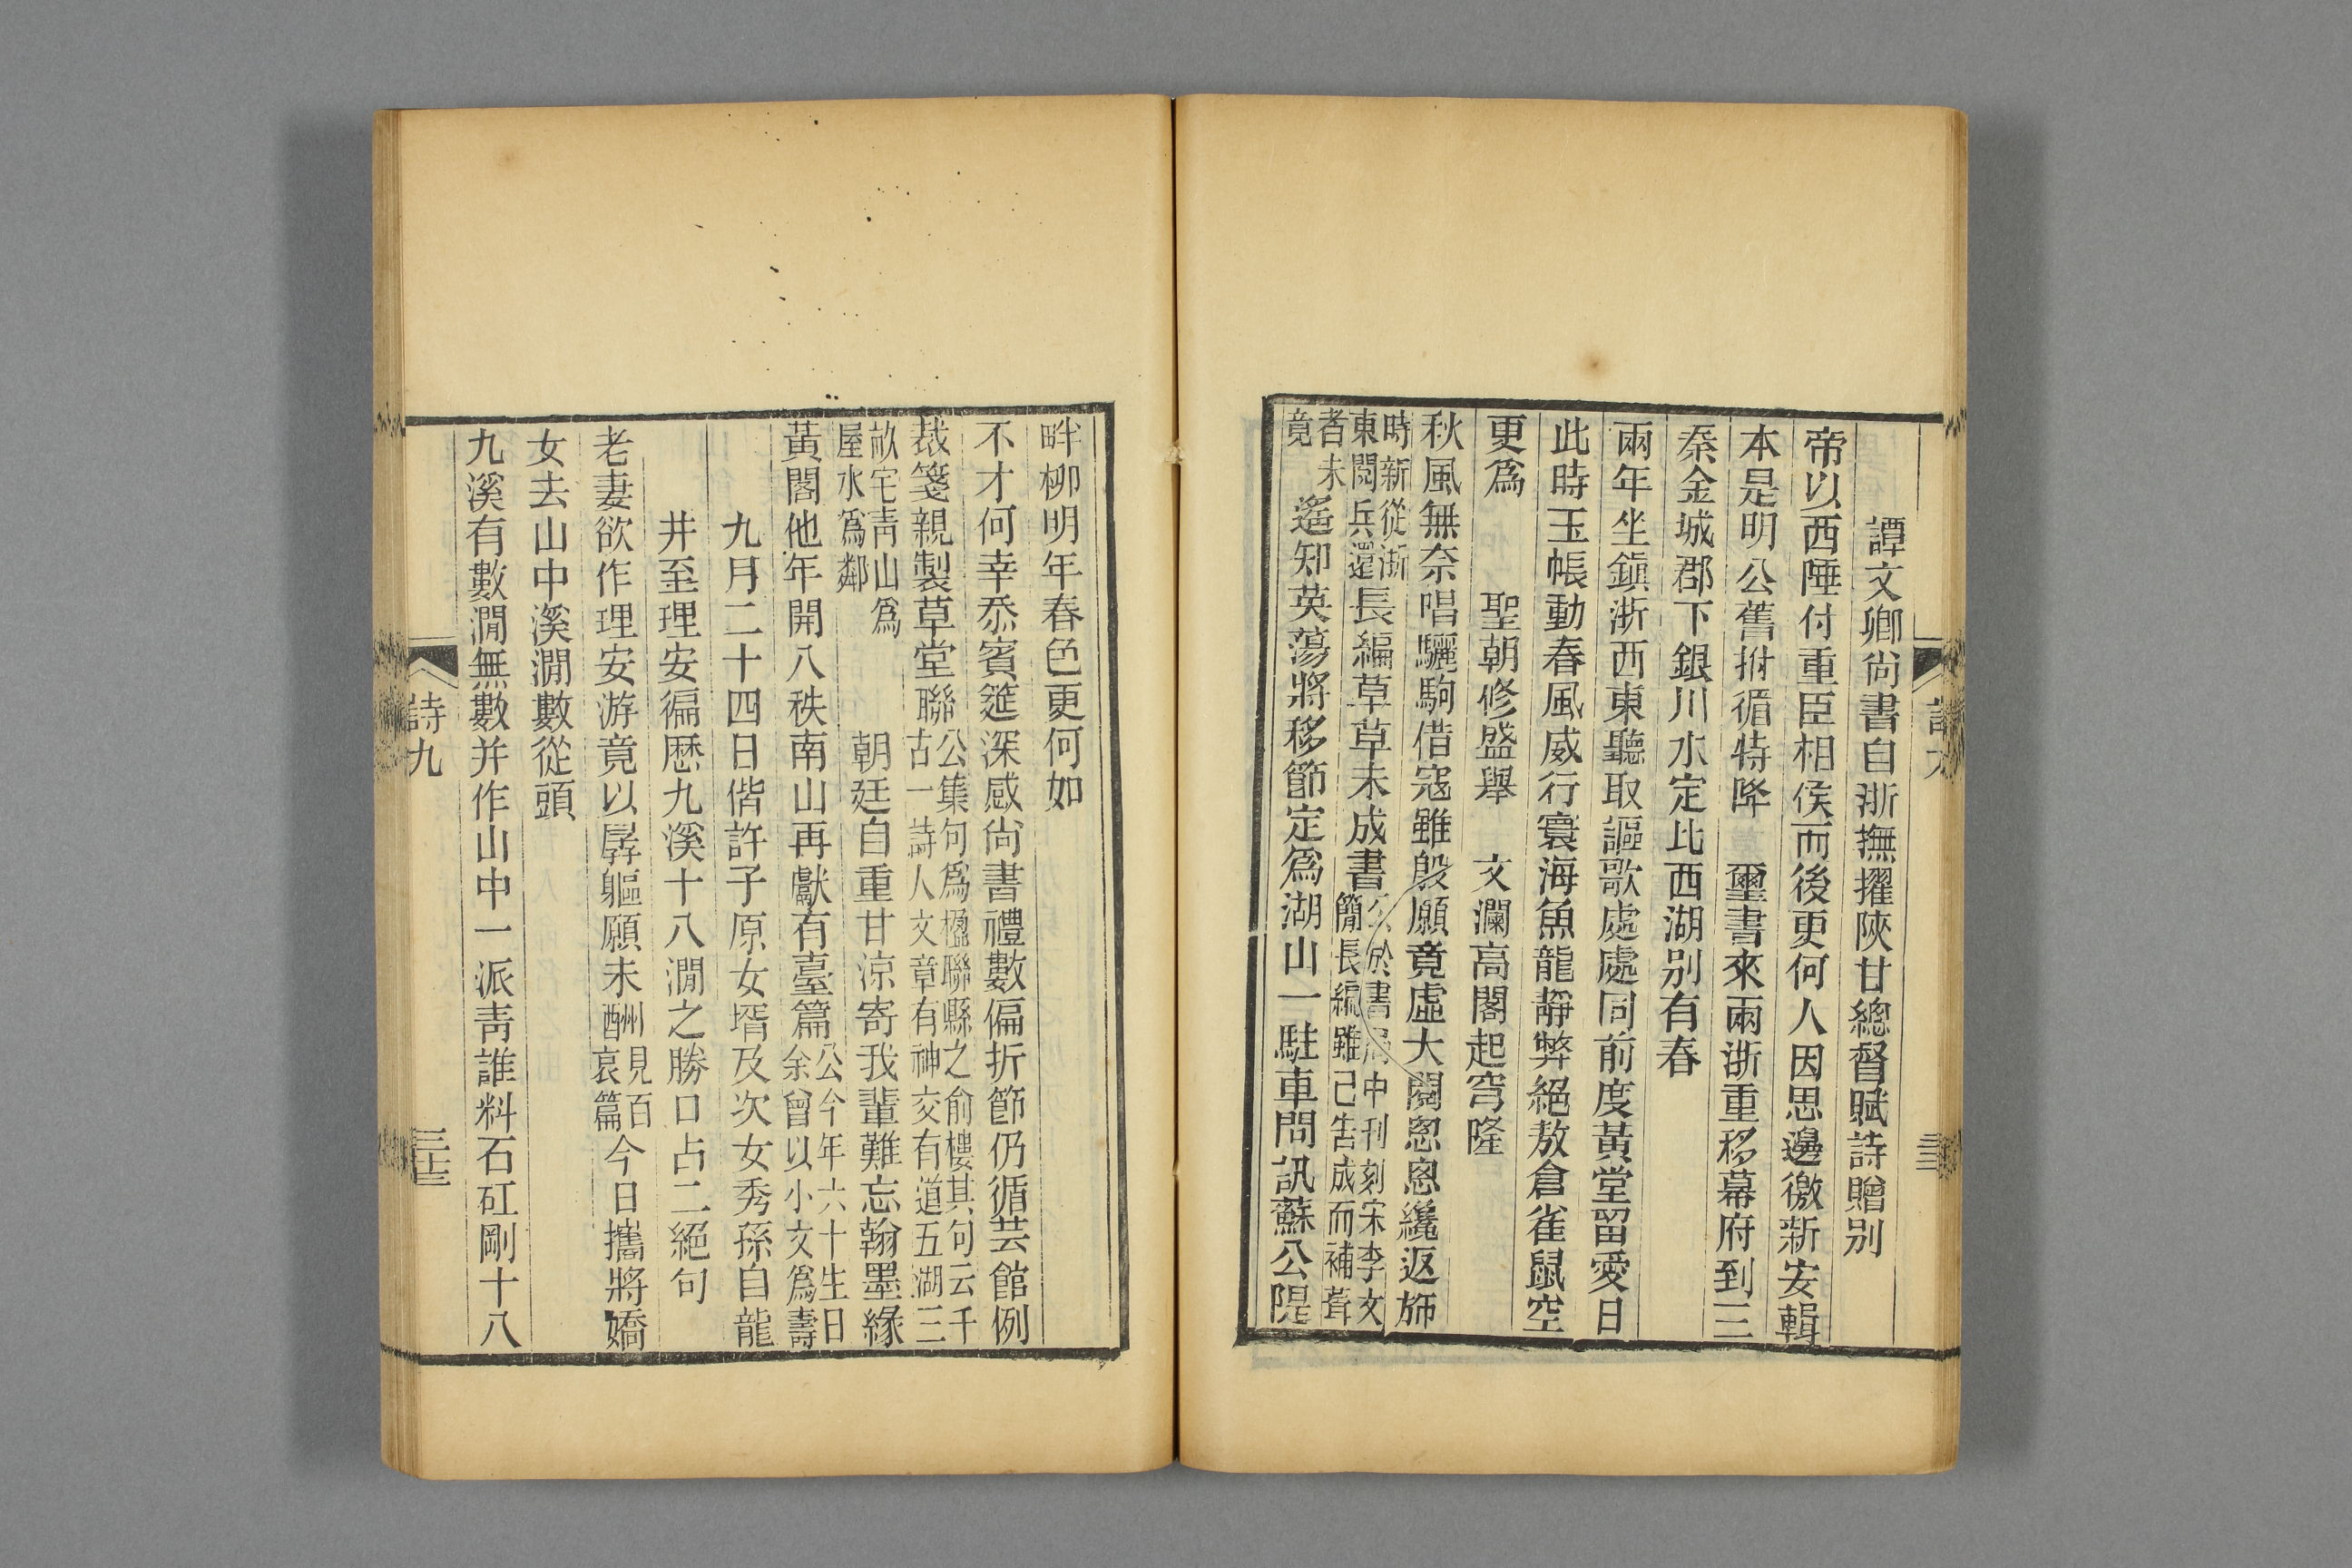 譚文卿尚書自浙撫擢陝甘總督賦詩贈别
帝以西陲付重臣相侯而後更何人因思邊徼新安輯
本是明公舊拊循特降 璽書來兩浙重移幕府到三
秦金城郡下銀川水定比西湖别有春
兩年坐鎭浙西東聽取謳歌處處同前度黃堂留愛日
此時玉帳動春風威行寰海魚龍靜弊絕敖倉雀鼠空
更爲 聖朝修盛舉 文瀾高閣起穹隆
秋風無奈唱驪駒借寇雖殷願竟虛大閱悤悤纔返斾
時新從浙
東閱兵還
長編草草未成書
公於書局中刊刻宋李文
簡長編雖已吿成而補葺
者未
竟
遙知英蕩將移節定爲湖山一駐車問訊蘇公隄
詩九
畔柳明年春色更何如
不才何幸忝賓筵深感尚書禮數偏折節仍循芸館例
裁箋親製草堂聯
公集句爲楹聯縣之俞樓其句云千
古一詩人文章有神交有道五湖三
畝宅靑山爲
屋水爲鄰
朝廷自重甘凉寄我輩難忘翰墨緣
黃閣他年開八秩南山再獻有臺篇
公今年六十生日
余曾以小文爲壽
九月二十四日偕許子原女壻及次女秀孫自龍
井至理安徧歷九溪十八澗之勝口占二絕句
老妻欲作理安游竟以孱軀願未酬
見百
哀篇
今日攜將嬌
女去山中溪澗數從頭
九溪有數澗無數并作山中一派靑誰料石矼剛十八
詩九
三十三